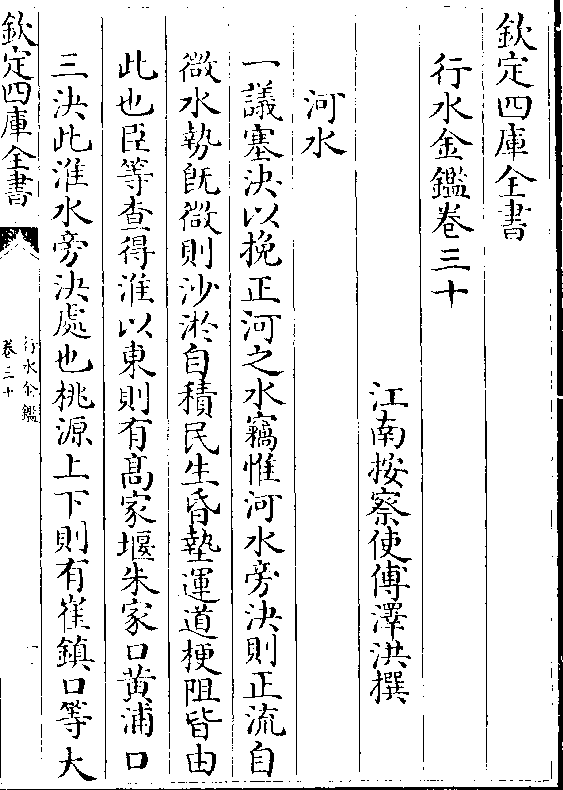 欽定四庫全書
行水金鑑卷三十
江南按察使傅澤洪撰
河水
一議塞決以挽正河之水竊惟河水旁決則正流自
微水勢旣微則沙淤自積民生昏墊運道梗阻皆由
此也臣等查得淮以東則有髙家堰朱家口黄浦口
三決此淮水旁決處也桃源上下則有崔鎮口等大
欽定四庫全書
行水金鑑
卷三十
一